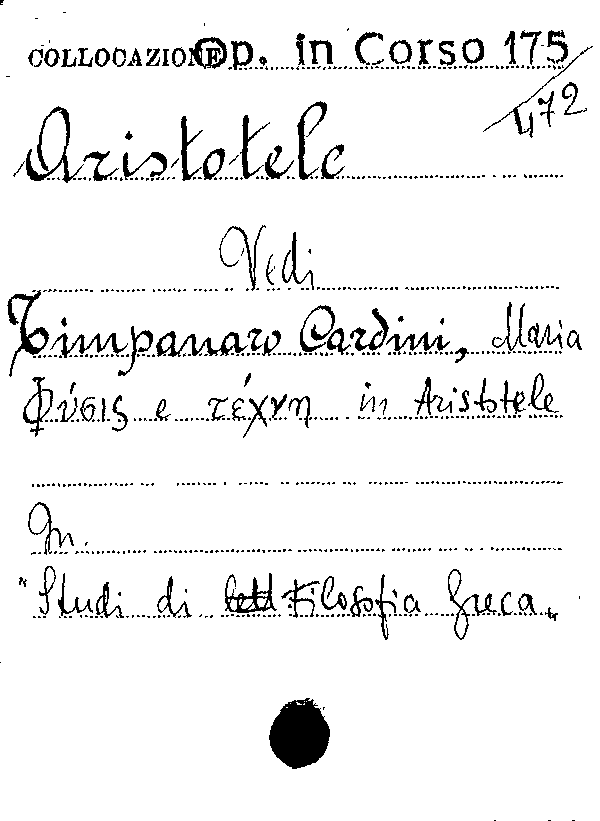 COLLOCAZIONE Op. in Corso 175
472
Aristotele
Vedi
Timpanaro Cardini, Maria
Φύσις e τέχνη in Aristotele
In.
"Studi di Filosofia Greca"